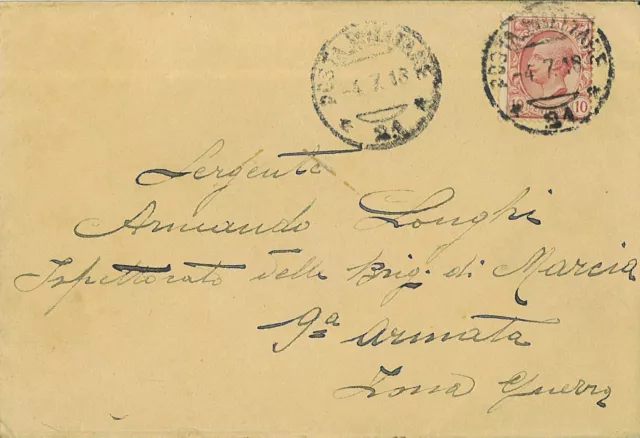 POSTA MILITARE
-4.7.18
21
POSTA MILITARE
-4.7.18
21
10
Sergente
Armando Longhi
Ispettorato delle Brig. di Marcia
9ª armata
Zona Guerra